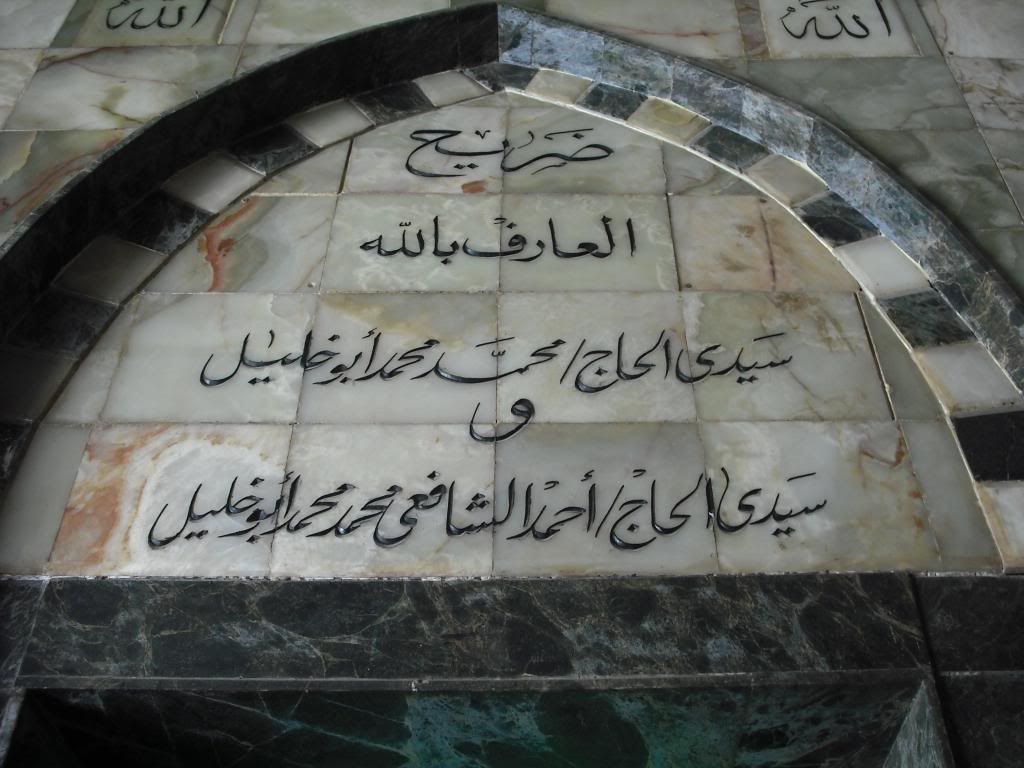 الله الله
ضريح
العارف بالله
سيدى الحاج/محمد محمد أبو خليل
و
سيدى الحاج/أحمد الشافعى محمد محمد أبو خليل